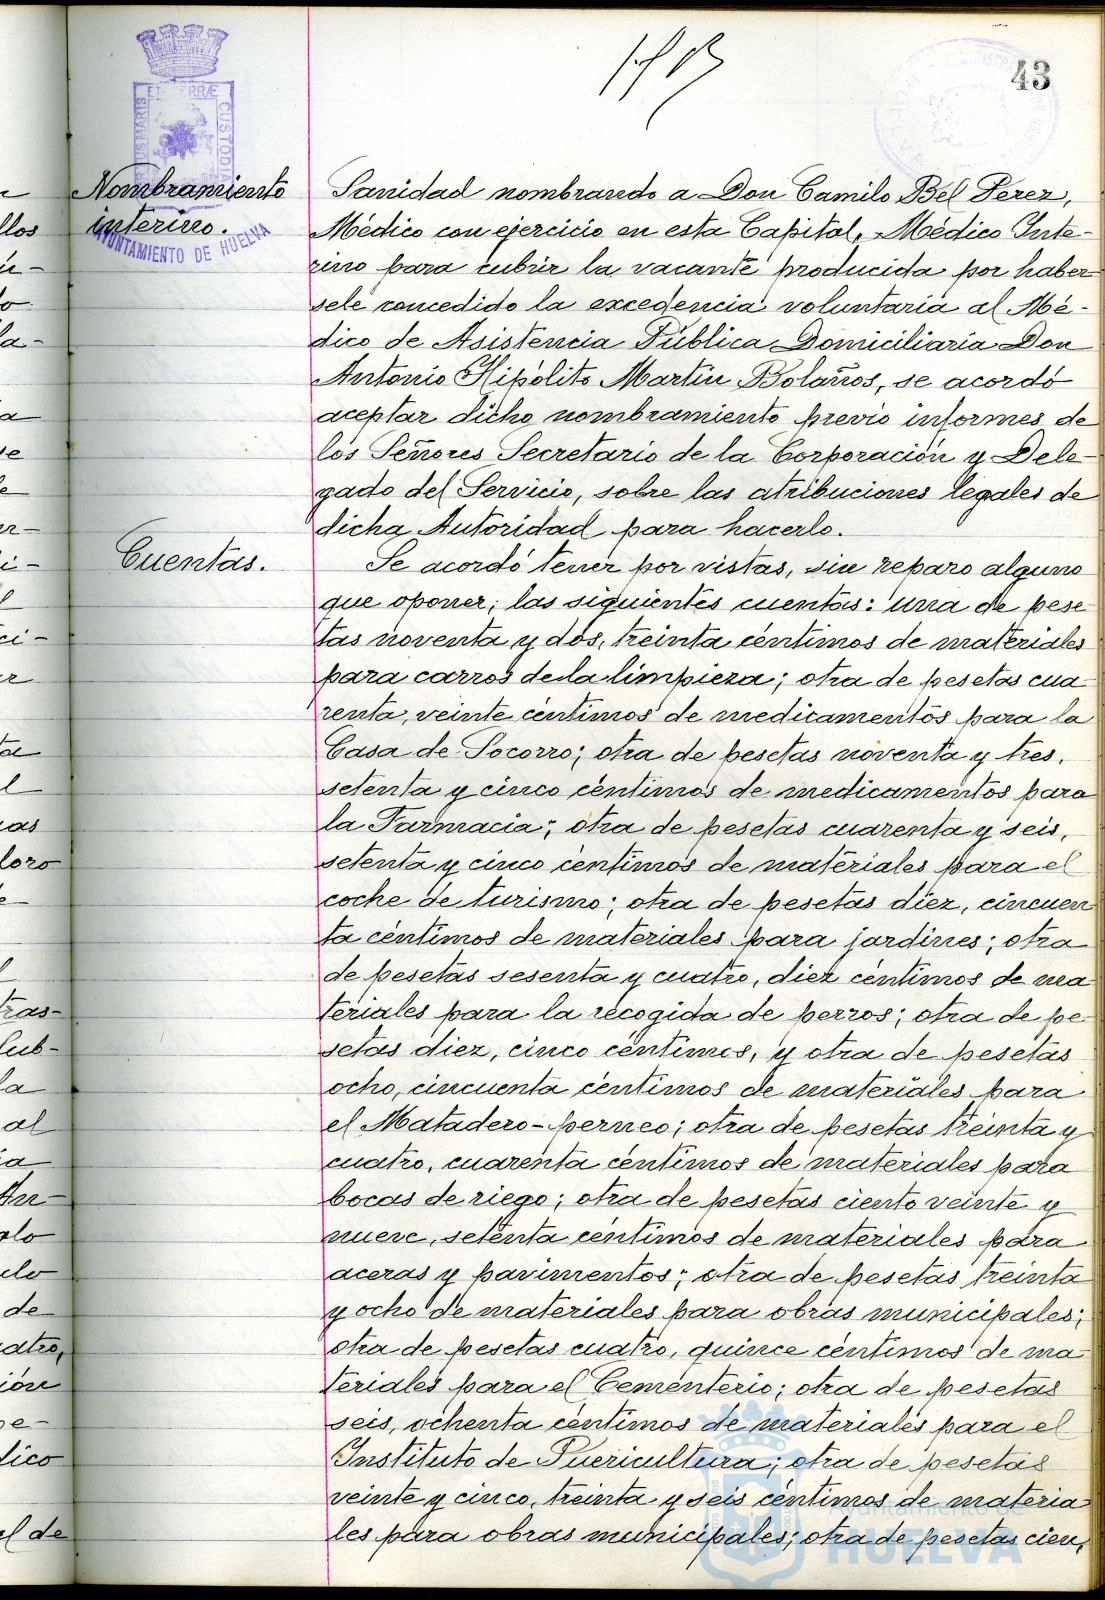 43
Nombramiento
interino.
AYUNTAMIENTO DE HUELVA
Sanidad nombrando a Don Camilo Bel Perez,
Médico con ejercicio en esta Capital, Médico Inte-
rino para cubrir la vacante producida por haber
sele concedido la excedencia voluntaria al Mé-
dico de Asistencia Pública Domiciliaria Don
Antonio Hipólito Martín Bolaños, se acordó
aceptar dicho nombramiento previo informes de
los Señores Secretario de la Corporación y Dele-
gado del Servicio, sobre las atribuciones legales de
dicha Autoridad para hacerlo.
Cuentas.
Se acordó tener por vistas, sin reparo alguno
que oponer, las siguientes cuentas: una de pese
tas noventa y dos, treinta céntimos de materiales
para carros de la limpieza; otra de pesetas cua
renta, veinte céntimos de medicamentos para la
Casa de Socorro; otra de pesetas noventa y tres,
setenta y cinco céntimos de medicamentos para
la Farmacia; otra de pesetas cuarenta y seis,
setenta y cinco céntimos de materiales para el
coche de turismo; otra de pesetas diez, cincuen
ta céntimos de materiales para jardines; otra
de pesetas sesenta y cuatro, diez céntimos de ma
teriales para la recogida de perros; otra de pe
setas diez, cinco céntimos, y otra de pesetas
ocho, cincuenta céntimos de materiales para
el Matadero-perneo; otra de pesetas treinta y
cuatro, cuarenta céntimos de materiales para
bocas de riego; otra de pesetas ciento veinte y
nueve, setenta céntimos de materiales para
aceras y pavimentos; otra de pesetas treinta
y ocho de materiales para obras municipales;
otra de pesetas cuatro, quince céntimos de ma
teriales para el Cementerio; otra de pesetas
seis, ochenta céntimos de materiales para el
Instituto de Puericultura; otra de pesetas
veinte y cinco, treinta y seis céntimos de materia
les para obras municipales; otra de pesetas cien,
Ayuntamiento de
HUELVA